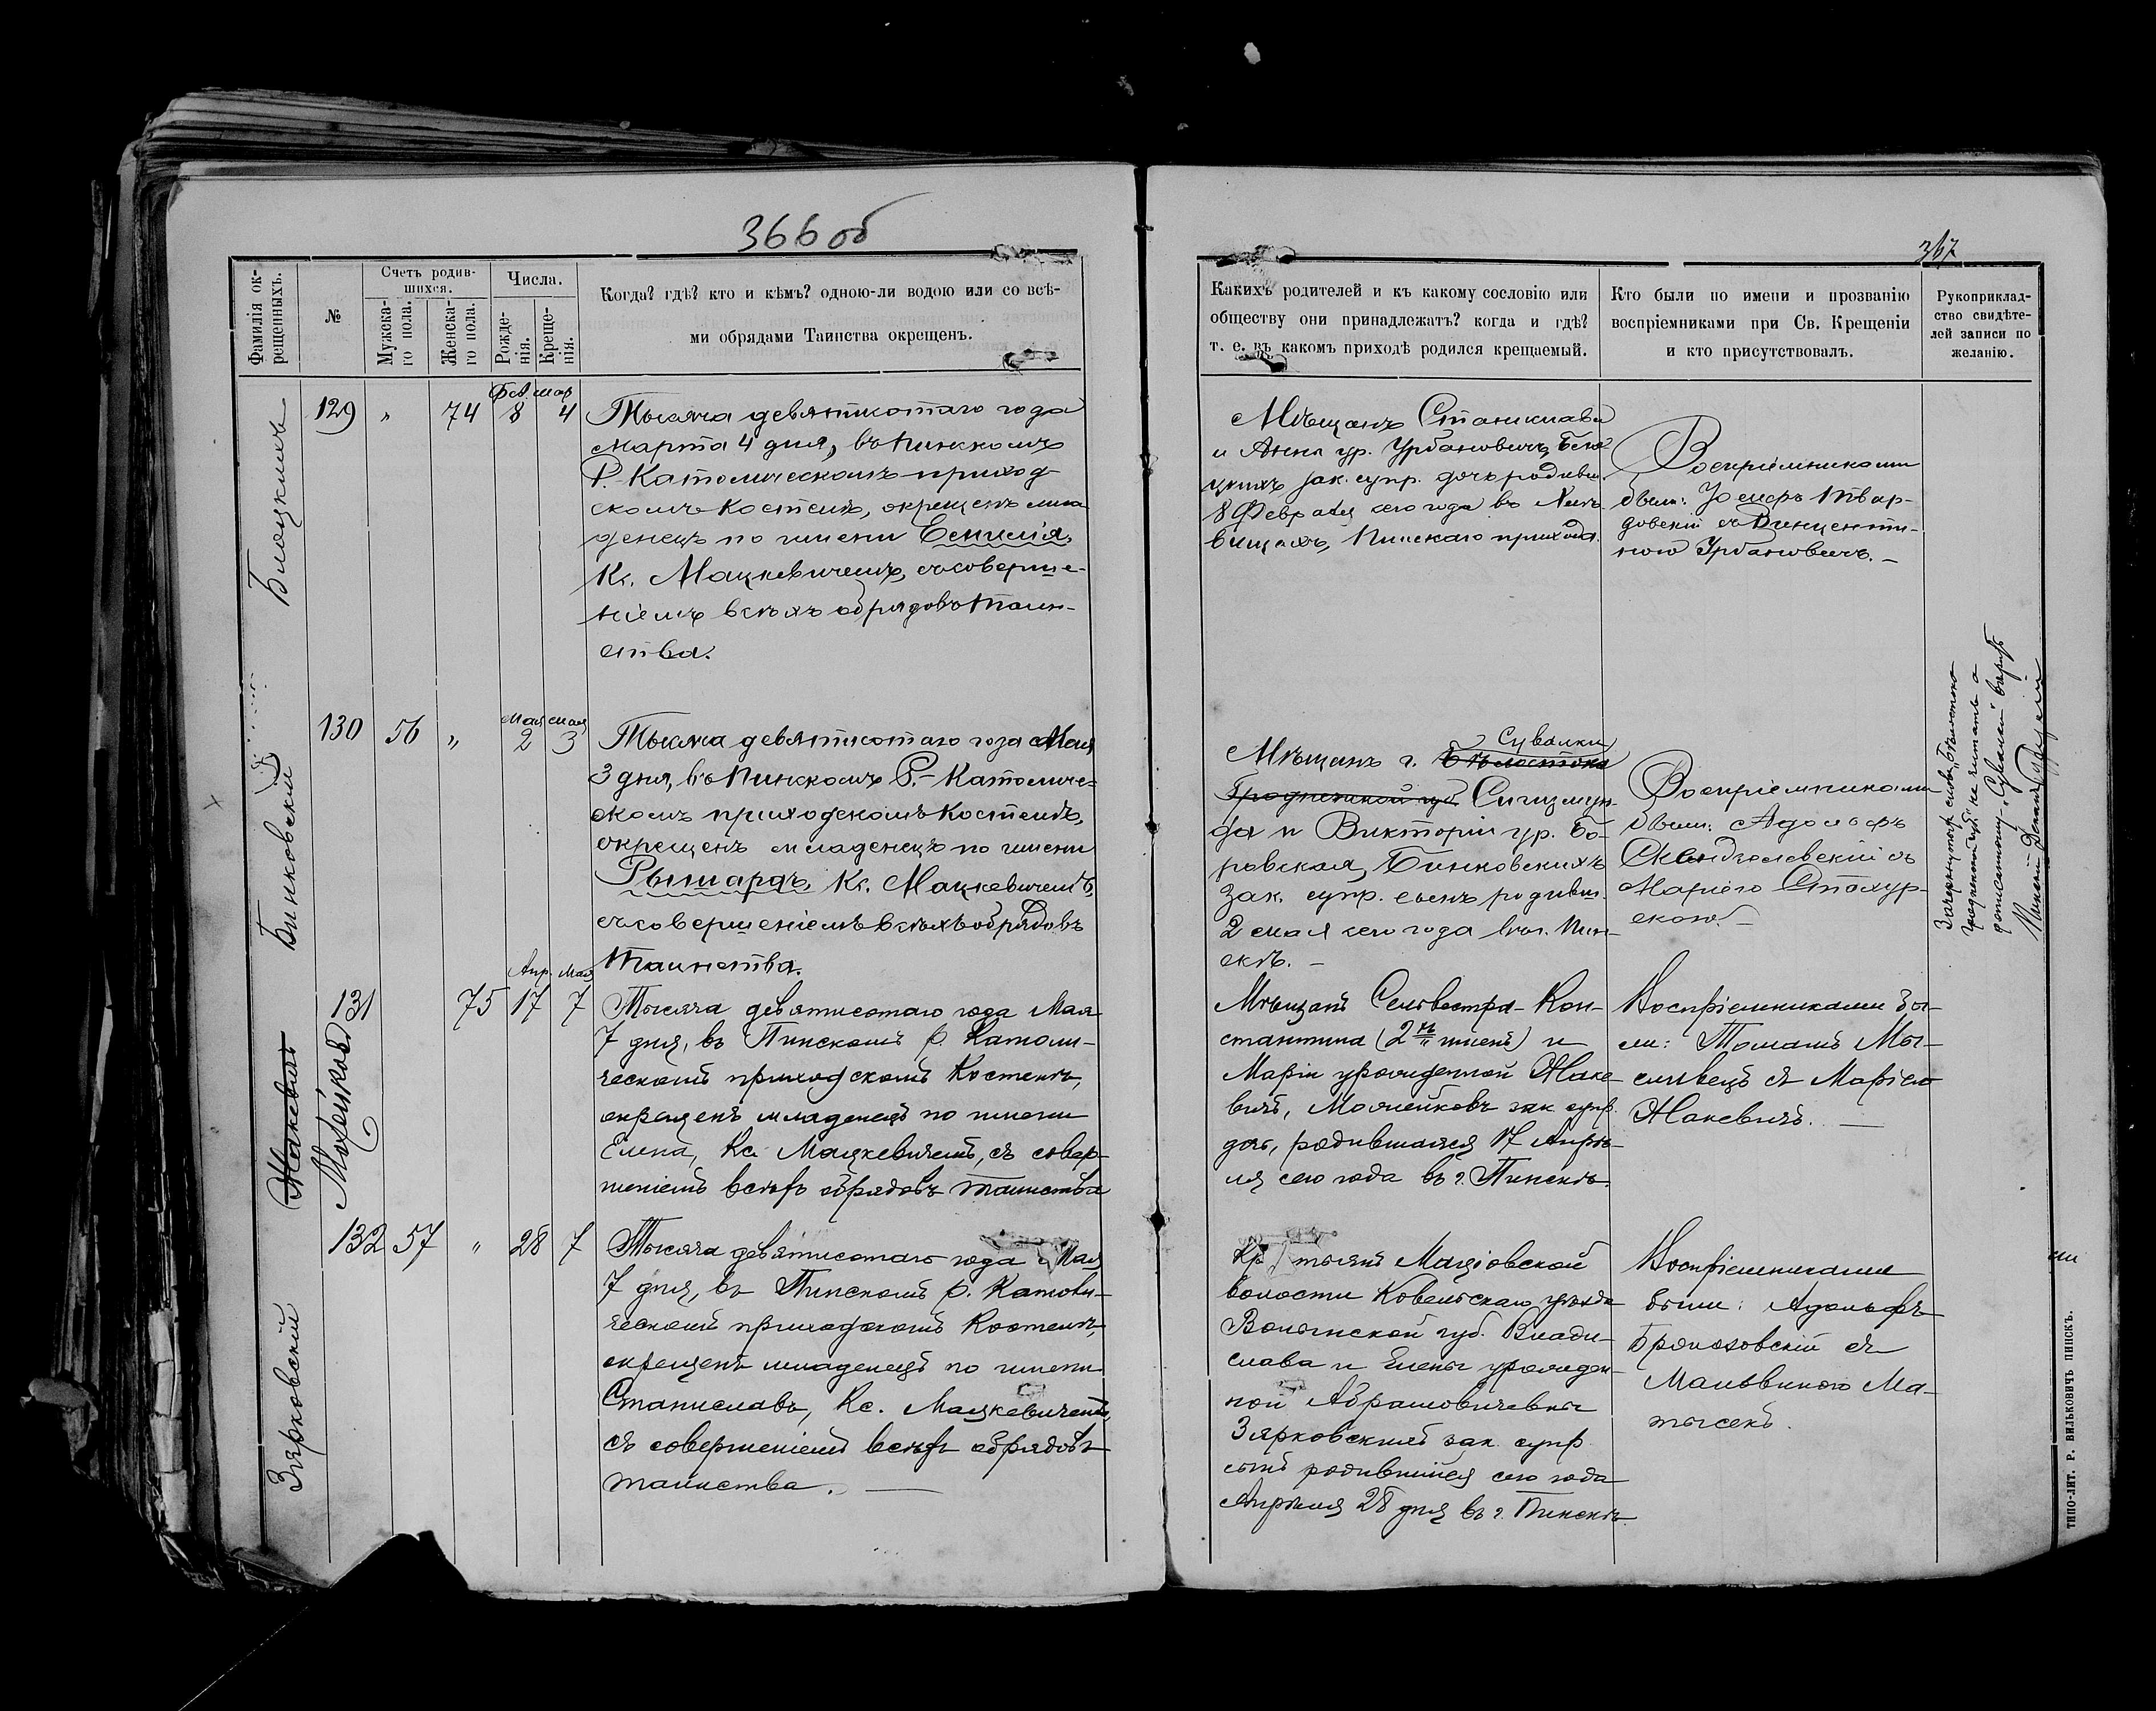 366 об
Фамилія ок-
рещенныхъ.
№
Счетъ родив-
шихся.
Мужска-
го пола.
Женска-
го пола.
Числа.
Рожде-
нія.
Креще-
нія.
Когда? гдѣ? кто и кѣмъ? одною-ли водою или со всѣ-
ми обрядами Таинства окрещенъ.
129 " 74
Фев. Мар
8 4
Тысяча девятисотаго года
марта 4 дня, въ Пинскомъ
Р. Католическомъ приход-
скомъ Костелѣ, окрещенъ мла
денецъ по имени
Кс. Мацкевичемъ, съ соверше-
ніемъ всѣхъ обрядовъ таин-
ства.
Бинковскій
130 56 "
Мая Мая
2 3
Тысяча девятисотаго года Мая
3 дня, въ Пинскомъ Р.-Католиче-
скомъ приходскомъ Костелѣ,
окрещенъ младенецъ по имени
Рышардъ, Кс. Мацкевичемъ,
съ совершеніемъ всѣхъ обрядовъ
Таинства.
Жакевичъ
Можейковъ
131 75
Апр. Мая
17 7
Тысяча девятисотаго года Мая
7 дня, въ Пинскомъ р. Католи-
ческомъ приходскомъ Костелѣ,
окрещенъ младенецъ по имени
Елена, Кс. Мацкевичемъ, съ совер-
шеніемъ всѣхъ обрядовъ таинства
Зярковскій
132 57 " 28 7
Тысяча девятисотаго года Мая
7 дня, въ Пинскомъ р. Католи-
ческомъ приходскомъ Костелѣ,
окрещенъ младенецъ по имени
Станиславъ, Кс. Мацкевичемъ,
съ совершеніемъ всѣхъ обрядовъ
таинства.
367
Какихъ родителей и къ какому сословію или
обществу они принадлежатъ? когда и гдѣ?
т. е. въ какомъ приходѣ родился крещаемый.
Кто были по имени и прозванію
воспріемниками при Св. Крещеніи
и кто присутствовалъ.
Рукоприклад-
ство свидѣте-
лей записи по
желанію.
Мѣщанъ Станислава
и Анны ур. Урбановичъ,
зак. супр. дочь родивш.
8 Февраля сего года въ
Пинскаго прихода.
Воспріемниками
были: Іосифъ Твар-
довскій съ Винценти-
ною Урбановичъ. –
Сувалки
Мѣщанъ г. Бѣлостока
Гродненской губ. Сигизмун-
да и Викторіи ур. Бо-
ровская, Бинковскихъ
зак. супр. сынъ родивш.
2 мая сего года въ г. Пин-
скѣ. –
Воспріемниками
были: Адольфъ
съ
Маріею
скою. –
Зачеркнутое слово "Бѣлостока
Гродненской губ" не читать а
Мѣщанъ Сельвестра-Кон-
стантина (2 хъ именъ) и
Маріи урожденной Жаке-
вичъ, Можейковъ зак супр
дочь, родившаяся 17 Апрѣ-
ля сего года въ г. Пинскѣ.
Воспріемниками бы-
ли: Томашъ Мы-
сливецъ съ Маріею
Жакевичъ. —
тьянъ Маціовской
волости Ковельскаго уѣзда
Волынской губ. Влади-
слава и Елены урожден-
ной Абрамовичевны
Зярковскихъ зак. супр.
сынъ родившійся сего года
Апрѣля 28 дня въ г. Пинскѣ.
Воспріемниками
были: Адольфъ
съ
Мальвиною Ма-
тысекъ.
ТИПО-ЛИТ. Р. ВИЛЬКОВИЧЪ ПИНСКЪ.